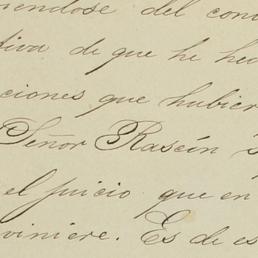 riendose del con
tiva de que he hec
ciones que hubier
Señor Rascón s
el juicio que en
viniere. Es de es